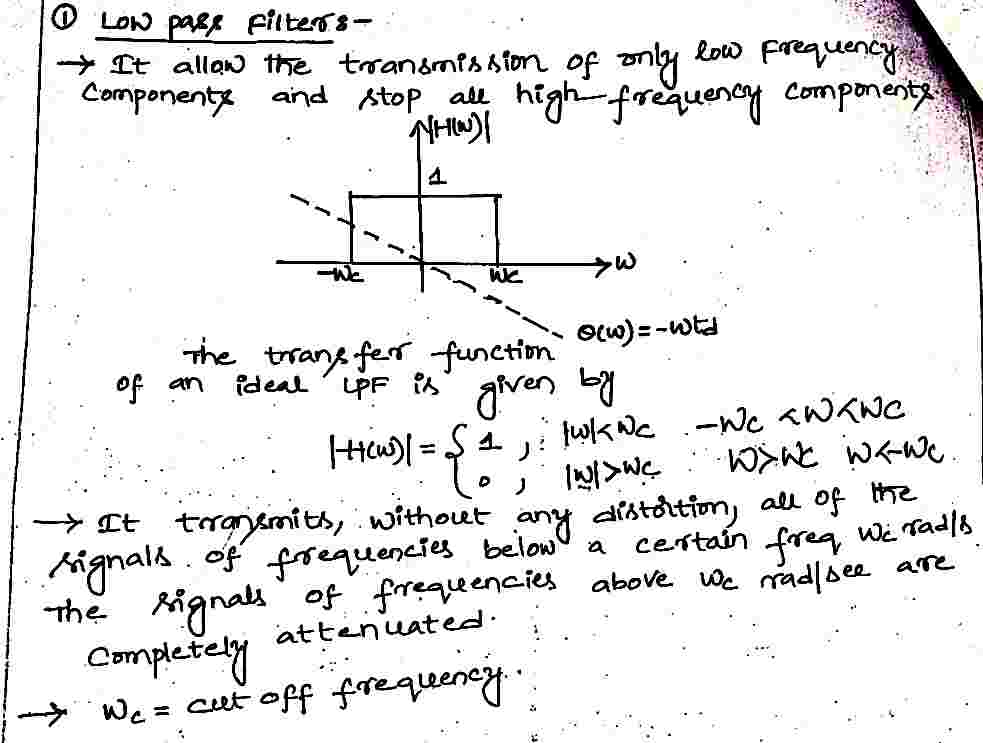 ① Low pass Filters:-
→ It allow the transmission of only low frequency
Components and stop all high-frequency components
|H(ω)|
1
-ωc ωc →ω
θ(ω)=-ωtd
The transfer function
of an ideal LPF is given by
|H(ω)| = { 1 , : |ω|<ωc -ωc <ω<ωc
0 , |ω|>ωc ω>ωc ω<-ωc
→ It transmits, without any distortion, all of the
signals of frequencies below a certain freq ωc rad/s
The signals of frequencies above ωc rad/sec are
Completely attenuated.
→ ωc = cut off frequency.